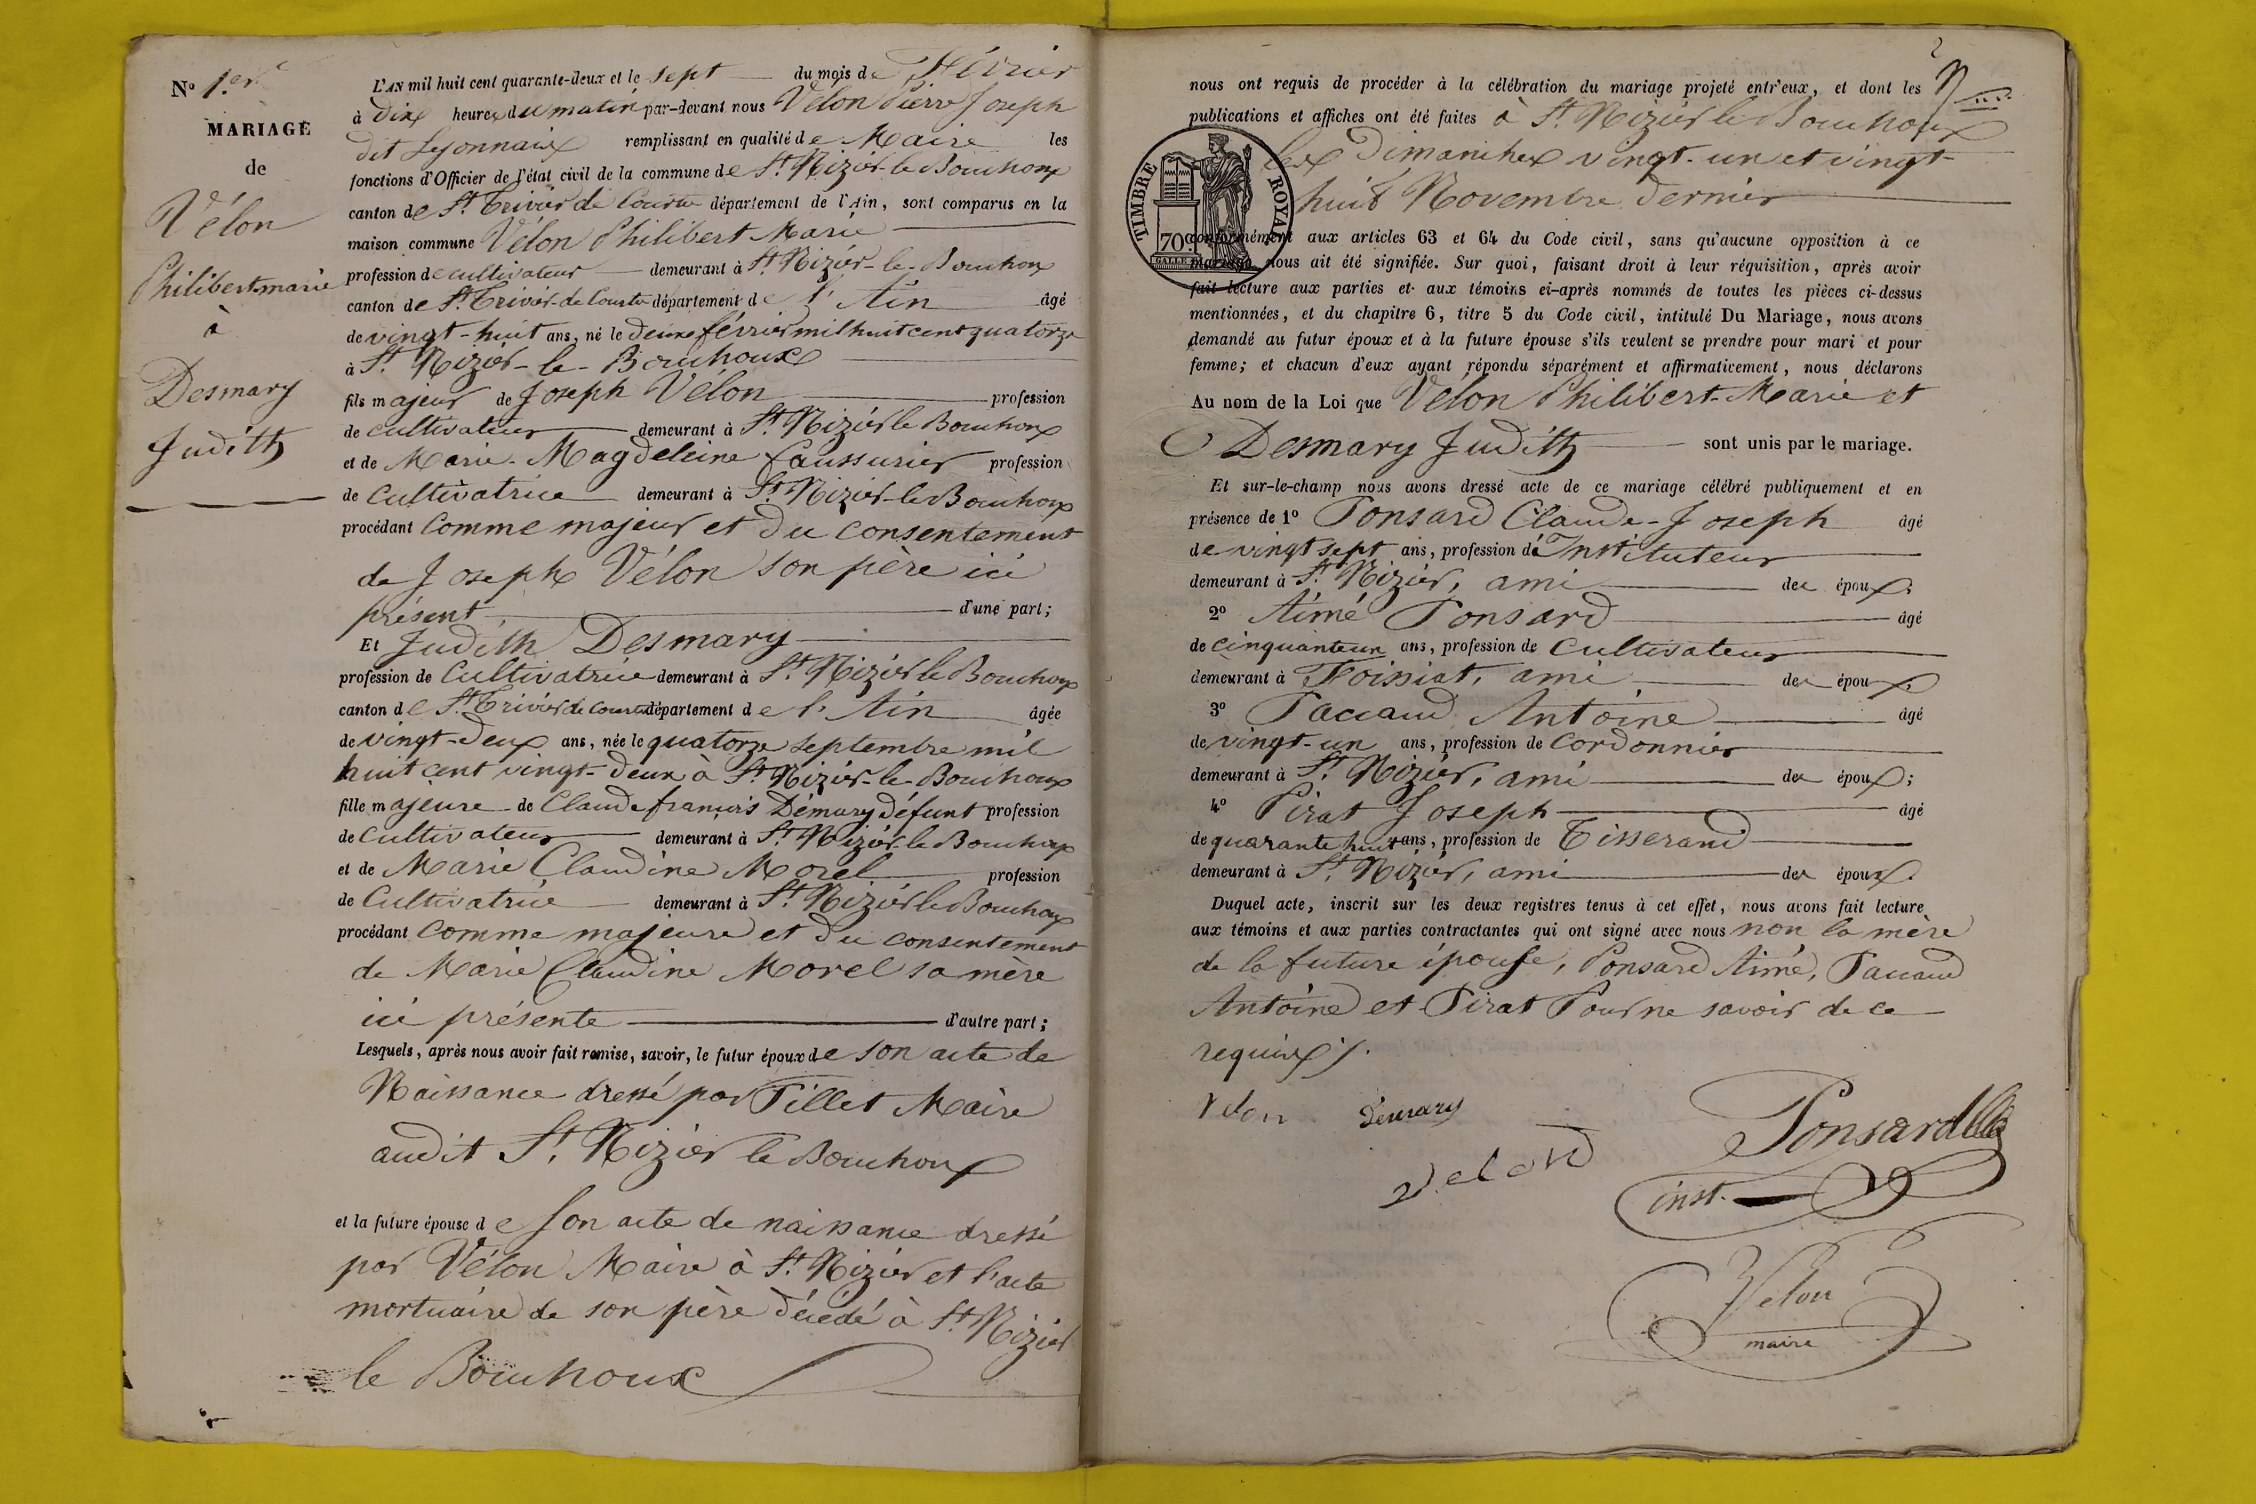 N.º 1.er
MARIAGE
de
Vélon
Philibert marie
à
Desmary
Judith
L'AN mil huit cent quarante-deux et le sept du mois de Février
à dix heures du matin par-devant nous Vélon Pierre Joseph
dit Lyonnaix remplissant en qualité de Maire les
fonctions d'Officier de l'état civil de la commune de St. Nizier-le-Bouchoux
canton de St. Trivier de Courte département de l'Ain, sont comparus en la
maison commune Vélon Philibert Marie
profession de cultivateur demeurant à St. Nizier-le-Bouchoux
canton de St. Trivier de Courte département de l'Ain âgé
de vingt-huit ans, né le deux février mil huit cent quatorze
à St. Nizier-le-Bouchoux
fils majeur de Joseph Vélon profession
de cultivateur demeurant à St. Nizier le Bouchoux
et de Marie-Magdeleine Faussurier profession
de Cultivatrice demeurant à St. Nizier-le Bouchoux
procédant comme majeur et du consentement
de Joseph Vélon son père ici
présent d'une part;
Et Judith Desmary
profession de Cultivatrice demeurant à St. Nizier le Bouchoux
canton de St. Trivier de Courte département de l'Ain âgée
de vingt-deux ans, née le quatorze septembre mil
huit cent vingt-deux à St. Nizier-le-Bouchoux
fille majeure de Claude françois Démary défunt profession
de cultivateur demeurant à St. Nizier le Bouchoux
et de Marie Claudine Morel profession
de Cultivatrice demeurant à St. Nizier le Bouchoux
procédant comme majeure et du consentement
de Marie Claudine Morel sa mère
ici présente d'autre part;
Lesquels, après nous avoir fait remise, savoir, le futur époux de son acte de
Naissance dressé par Pillet Maire
audit St. Nizier le Bouchoux
et la future épouse de son acte de naissance dressé
par Vélon Maire à St. Nizier et l'acte
mortuaire de son père décédé à St. Nizier
le Bouchoux
2
nous ont requis de procéder à la célébration du mariage projeté entr'eux, et dont les
publications et affiches ont été faites à St. Nizier le Bouchoux
les Dimanches vingt-un et vingt-
huit Novembre dernier
TIMBRE ROYAL
70
conformément aux articles 63 et 64 du Code civil, sans qu'aucune opposition à ce
mariage nous ait été signifiée. Sur quoi, faisant droit à leur réquisition, après avoir
fait lecture aux parties et aux témoins ci-après nommés de toutes les pièces ci-dessus
mentionnées, et du chapitre 6, titre 5 du Code civil, intitulé Du Mariage, nous avons
demandé au futur époux et à la future épouse s'ils veulent se prendre pour mari et pour
femme; et chacun d'eux ayant répondu séparément et affirmativement, nous déclarons
Au nom de la Loi que Vélon Philibert-Marie et
Desmary Judith sont unis par le mariage.
Et sur-le-champ nous avons dressé acte de ce mariage célébré publiquement et en
présence de 1º Ponsard Claude-Joseph âgé
de vingt sept ans, profession d'Instituteur
demeurant à St. Nizier, ami des époux;
2º Aimé Ponsard âgé
de cinquante un ans, profession de Cultivateur
demeurant à Foissiat, ami des époux;
3º Paccaud Antoine âgé
de vingt-un ans, profession de Cordonnier
demeurant à St. Nizier, ami des époux;
4º Pirat Joseph âgé
de quarante huit ans, profession de Tisserand
demeurant à St. Nizier, ami des époux.
Duquel acte, inscrit sur les deux registres tenus à cet effet, nous avons fait lecture
aux témoins et aux parties contractantes qui ont signé avec nous non la mère
de la future épouse, Ponsard Aimé, Paccaud
Antoine et Pirat Pour ne savoir de ce
requis ./.
Velon Demary
Velon
Ponsard
inst.
Velon
maire